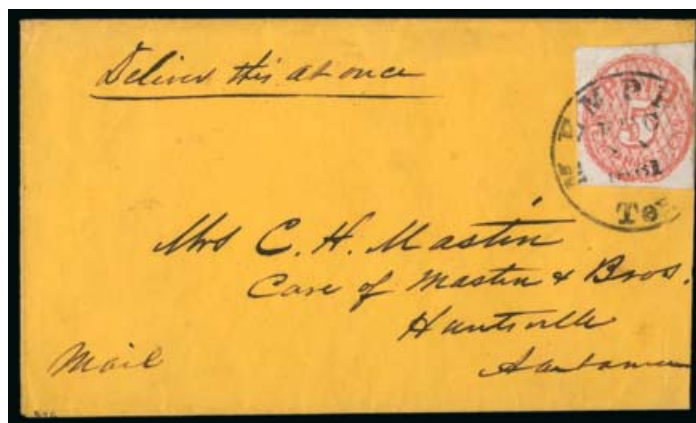 Deliver this at once
MEMPHIS
PAID
5
1861
Ten
Mrs C. H. Mastin
Care of Mastin & Bros.
Huntsville
Mail
Alabama